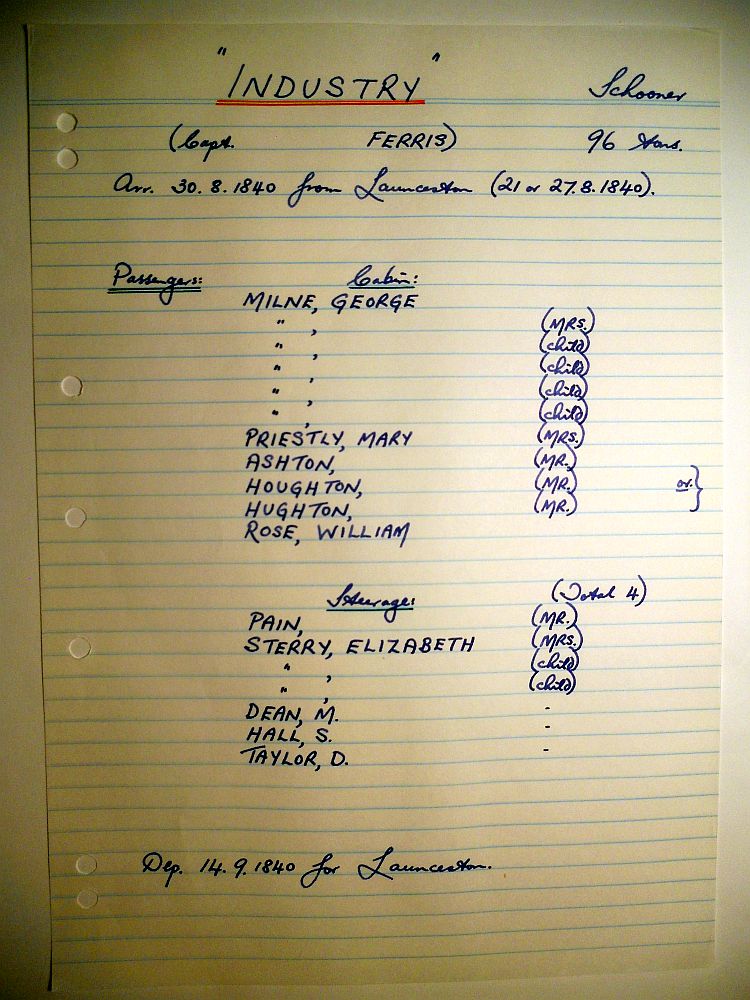 "INDUSTRY" Schooner
(Capt. FERRIS) 96 tons.
Arr. 30.8.1840 from Launceston (21 or 27.8.1840).
Passengers: Cabin:
MILNE, GEORGE
" , (MRS.)
" , (child)
" , (child)
" , (child)
" , (child)
PRIESTLY, MARY (MRS.)
ASHTON, (MR.)
HOUGHTON, (MR.) or }
HUGHTON, (MR.)
ROSE, WILLIAM
Steerage: (Total 4)
PAIN, (MR.)
STERRY, ELIZABETH (MRS.)
" , (child)
" , (child)
DEAN, M. -
HALL, S. -
TAYLOR, D. -
Dep. 14.9.1840 for Launceston.